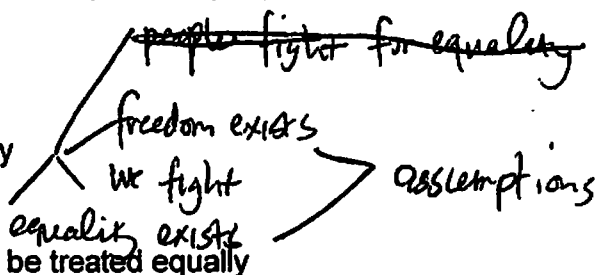 people fight for equality
freedom exists
y
we fight
assumptions
equality exists
be treated equally